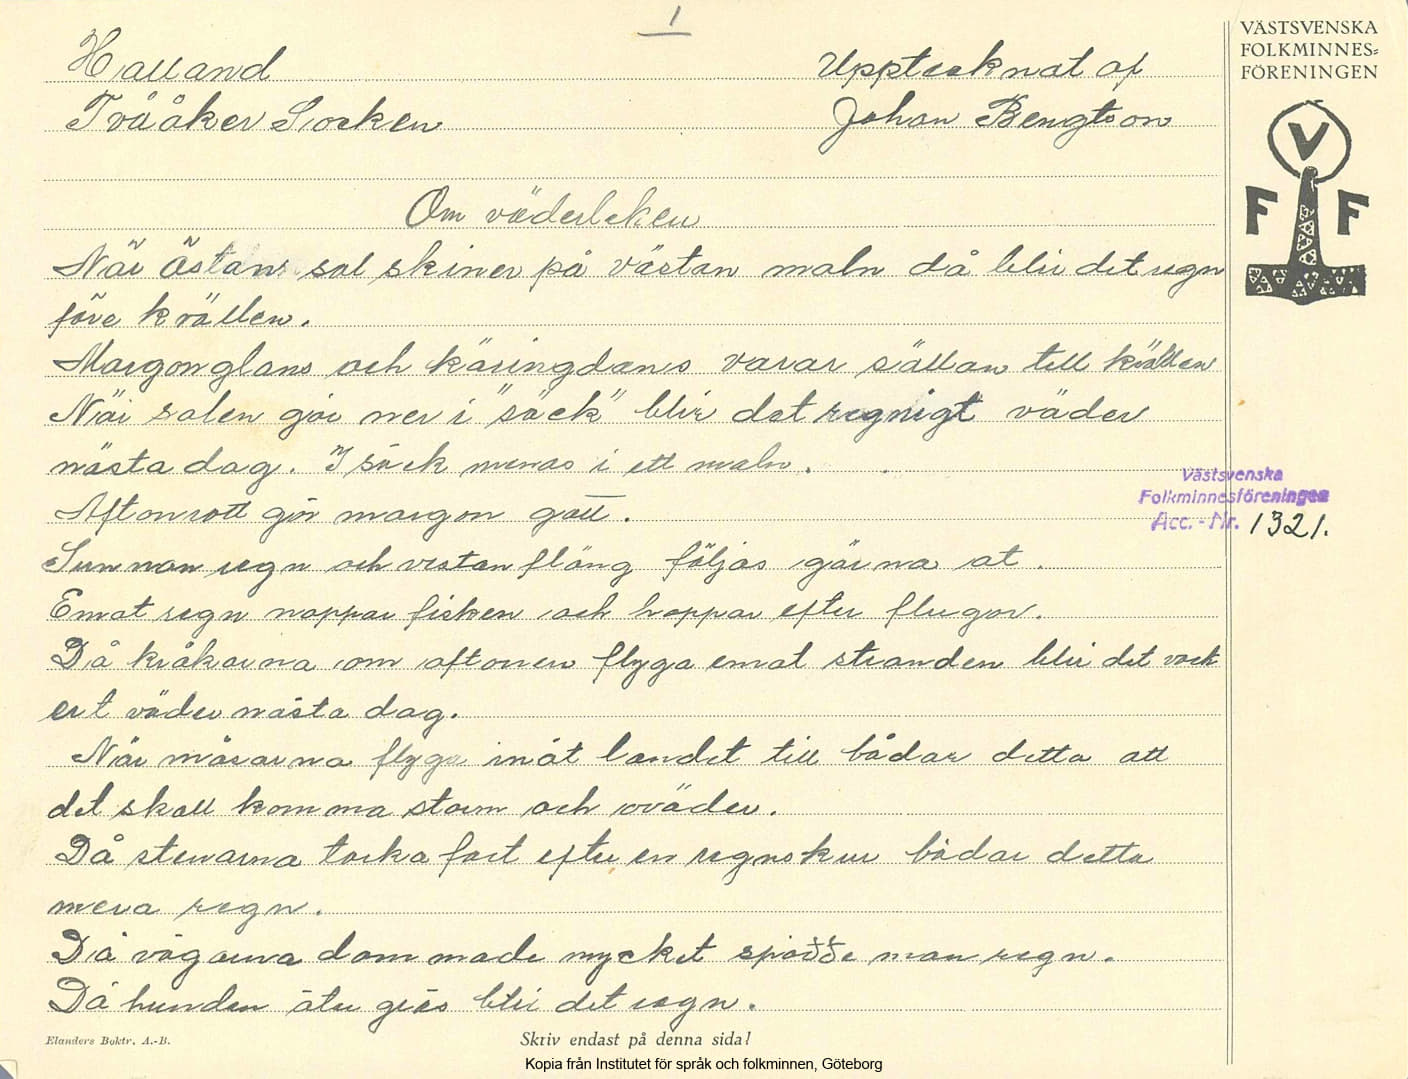 1
Halland
Upptecknat af
VÄSTSVENSKA
FOLKMINNES=
FÖRENINGEN
Tvååker Socken
Johan Bengtson
V
F F
Om väderleken
När östans sol skiner på västan maln då blir det regn
före kvällen.
Margonglans och käringdans varar sällan till kvällen
När solen går ner i "säck" blir det regnigt väder
nästa dag. I säck menas i ett maln.
Västsvenska
Folkminnesföreningen
Acc.-Nr. 1321.
Aftonrott gör margon gott.
Sunnan regn och vestan fläng följas gärna åt.
Emot regn nappar fisken och hoppar efter flugor.
Då kråkorna om aftonen flyga emot stranden blir det vack
ert väder nästa dag.
När måsarna flyga inåt landet till bådar detta att
det skall komma storm och oväder.
Då stenarna torka fort efter en regnskur bådar detta
mera regn.
Då vägarna dammade mycket spådde man regn.
Då hunden äter gräs blir det regn.
Elanders Boktr. A.-B.
Skriv endast på denna sida!
Kopia från Institutet för språk och folkminnen, Göteborg